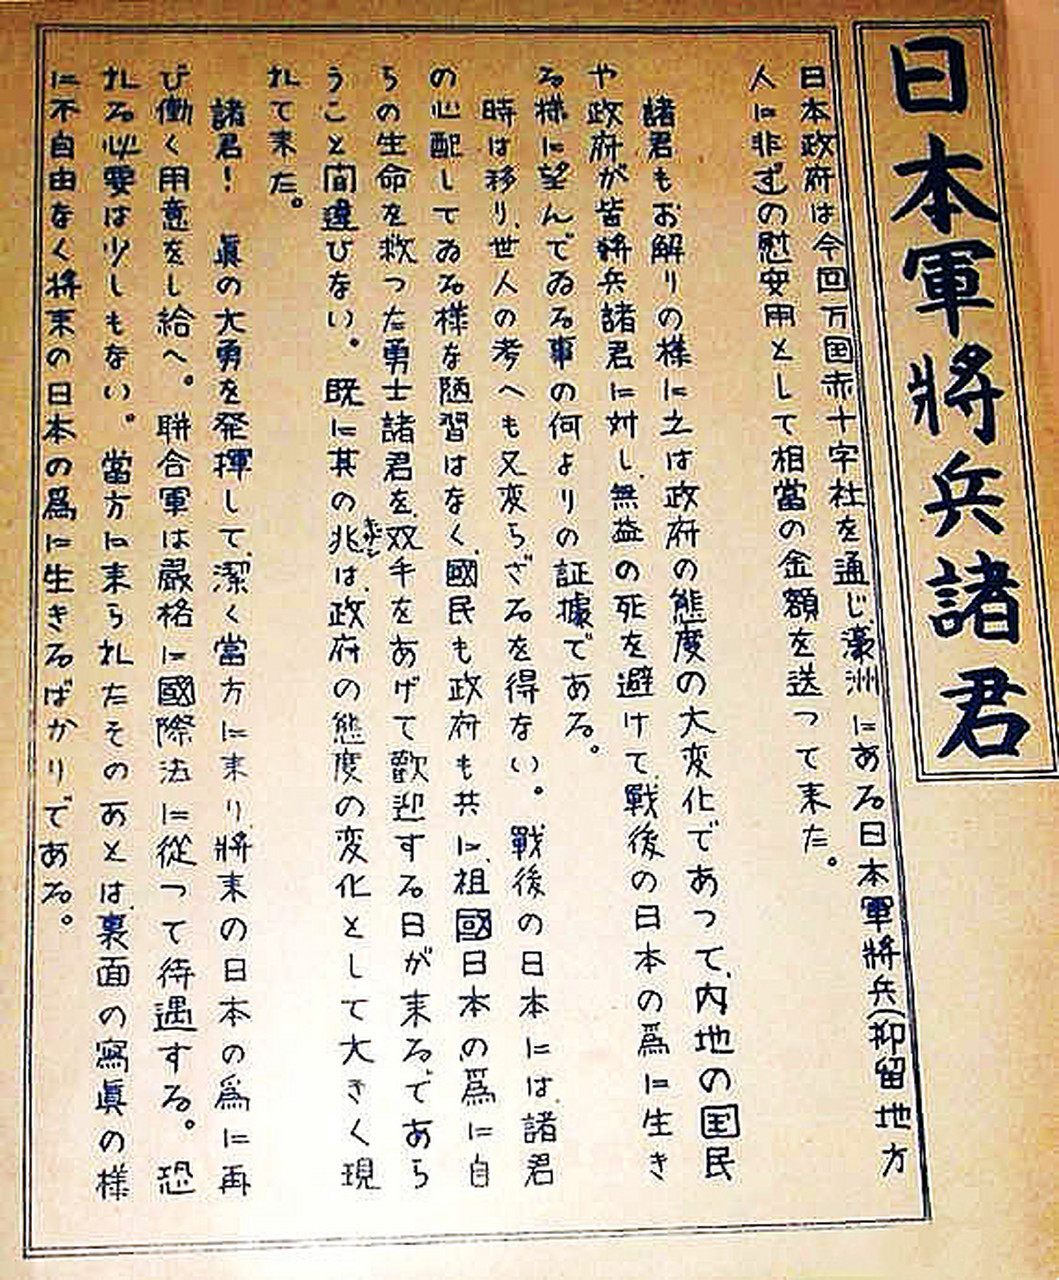 日本軍將兵諸君
日本政府は今回万国赤十字社を通じ、濠洲にある日本軍將兵(抑留地方
人に非ず)の慰安用として相當の金額を送って来た。
諸君もお解りの様に之は政府の態度の大変化であつて、内地の国民
や政府が皆將兵諸君に対し、無益の死を避けて、戦後の日本の爲に生き
る様に望んでゐる事の何よりの証據である。
時は移り、世人の考へも又変らざるを得ない。戰後の日本には諸君
の心配してゐる様な陋習はなく、國民も政府も共に、祖國日本の爲に自
らの生命を救った勇士諸君を、双手をあげて歡迎する日が来る、であら
うこと間違ひない。既に其の兆は、政府の態度の変化として大きく現
れて来た。
諸君！眞の大勇を発揮して、潔く當方に来り、將来の日本の為に再
び働く用意をし給へ。聯合軍は嚴格に國際法に從つて待遇する。恐
れる必要は少しもない。當方に来られたそのあとは、裏面の寫眞の様
に不自由なく將来の日本の爲に生きるばかりである。